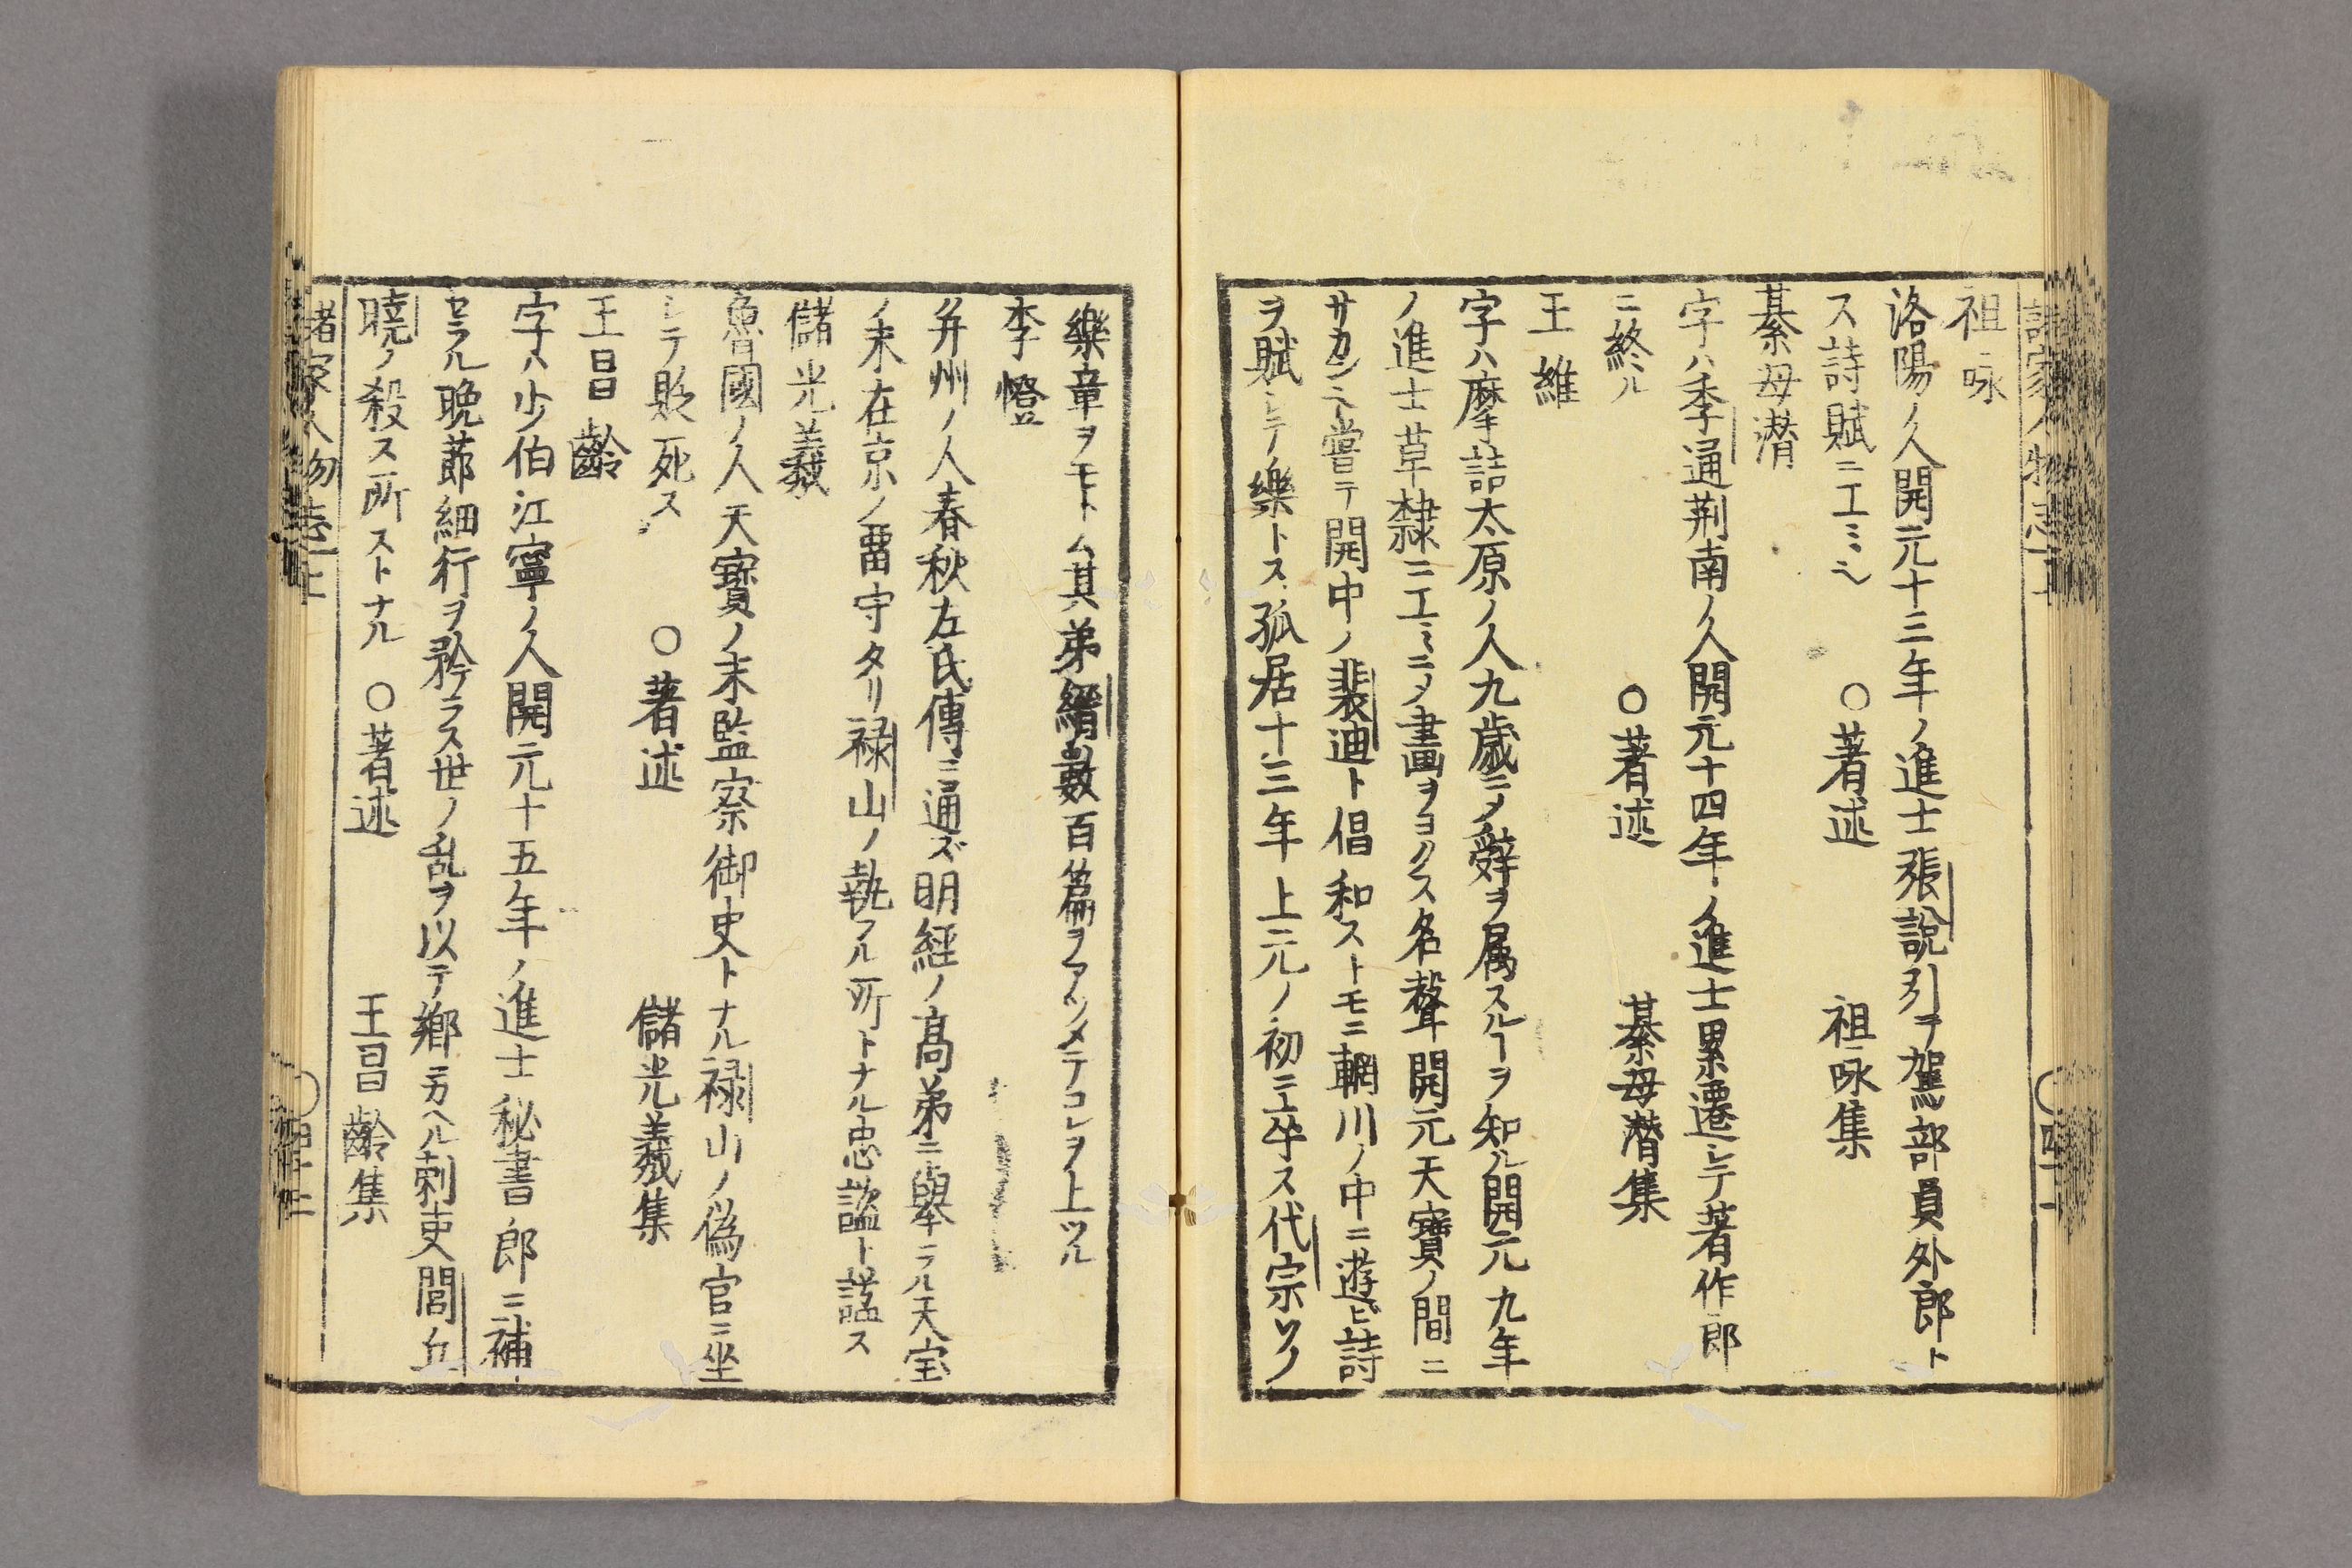 祖咏
洛陽ノ人開元十三年ノ進士張說引テ駕部員外郎ト
ス詩賦ニ工ミシ 〇著述 祖咏集
綦母潜
字ハ季通荆南ノ人開元十四年ノ進士累遷シテ著作郎
ニ終ル 〇著述 綦母潜集
王維
字ハ摩詰太原ノ人九歳ニメ辤ヲ属スルヿヲ知ル開元九年
ノ進士草隸ニ工ミニメ畫ヲヨクス名聲開元天寶ノ間ニ
サカンニ嘗テ開中ノ裴迪ト倡和ストモニ輞川ノ中ニ遊ビ詩
ヲ賦シテ樂トス孤居十三年上元ノ初ニ卒ス代宗ソノ
樂章ヲモトム其弟縉數百篇ヲアツメテコレヲ上ツル
李憕
幷州ノ人春秋左氏傳ニ通ズ明経ノ髙弟ニ舉ラル天宝
ノ末在京ノ畱守タリ禄山ノ執フル所トナル忠謚ト謚ス
儲光羲
魯國ノ人天寶ノ末監察御史トナル禄山ノ偽官ニ坐
シテ貶死ス 〇著述 儲光羲集
王昌齡
字ハ少伯江寧ノ人開元十五年ノ進士秘書郎ニ補
セラル晩莭細行ヲ矜ラス世ノ乱ヲ以テ鄉ニカヘル刺吏閭丘
曉ノ殺ス所ストナル 〇著述 王昌齡集
諸家人物志上